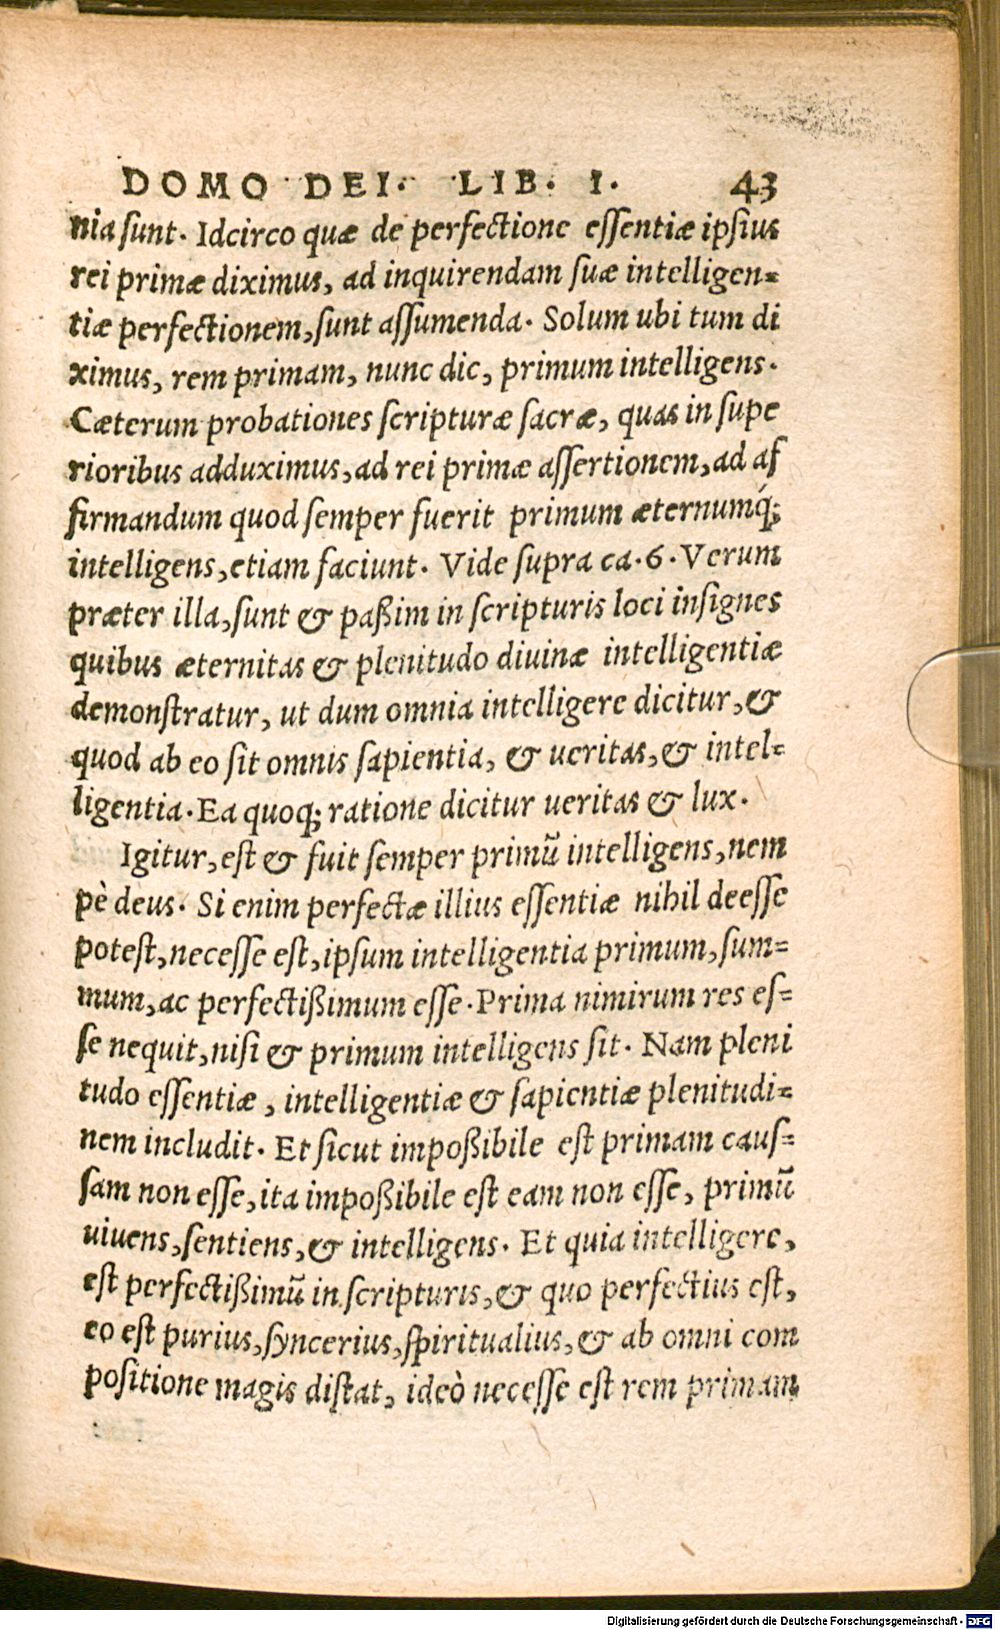 DOMO DEI. LIB. I. 43
nia sunt. Idcirco quæ de perfectione essentiæ ipsius
rei primæ diximus, ad inquirendam suæ intelligen=
tiæ perfectionem, sunt assumenda. Solum ubi tum di
ximus, rem primam, nunc dic, primum intelligens.
Cæterum probationes scripturæ sacræ, quas in supe
rioribus adduximus, ad rei primæ assertionem, ad af
firmandum quod semper fuerit primum æternumq́;
intelligens, etiam faciunt. Vide supra ca. 6. Verum
præter illa, sunt & paßim in scripturis loci insignes
quibus æternitas & plenitudo diuinæ intelligentiæ
demonstratur, ut dum omnia intelligere dicitur, &
quod ab eo sit omnis sapientia, & ueritas, & intel=
ligentia. Ea quoq; ratione dicitur ueritas & lux.
Igitur, est & fuit semper primũ intelligens, nem
pè deus. Si enim perfectæ illius essentiæ nihil deesse
potest, necesse est, ipsum intelligentia primum, sum=
mum, ac perfectißimum esse. Prima nimirum res es=
se nequit, nisi & primum intelligens sit. Nam pleni
tudo essentiæ, intelligentiæ & sapientiæ plenitudi=
nem includit. Et sicut impoßibile est primam caus=
sam non esse, ita impoßibile est eam non esse, primũ
uiuens, sentiens, & intelligens. Et quia intelligere,
est perfectißimũ in scripturis, & quo perfectius est,
eo est purius, syncerius, spiritualius, & ab omni com
positione magis distat, ideò necesse est rem primam
Digitalisierung gefördert durch die Deutsche Forschungsgemeinschaft - DFG